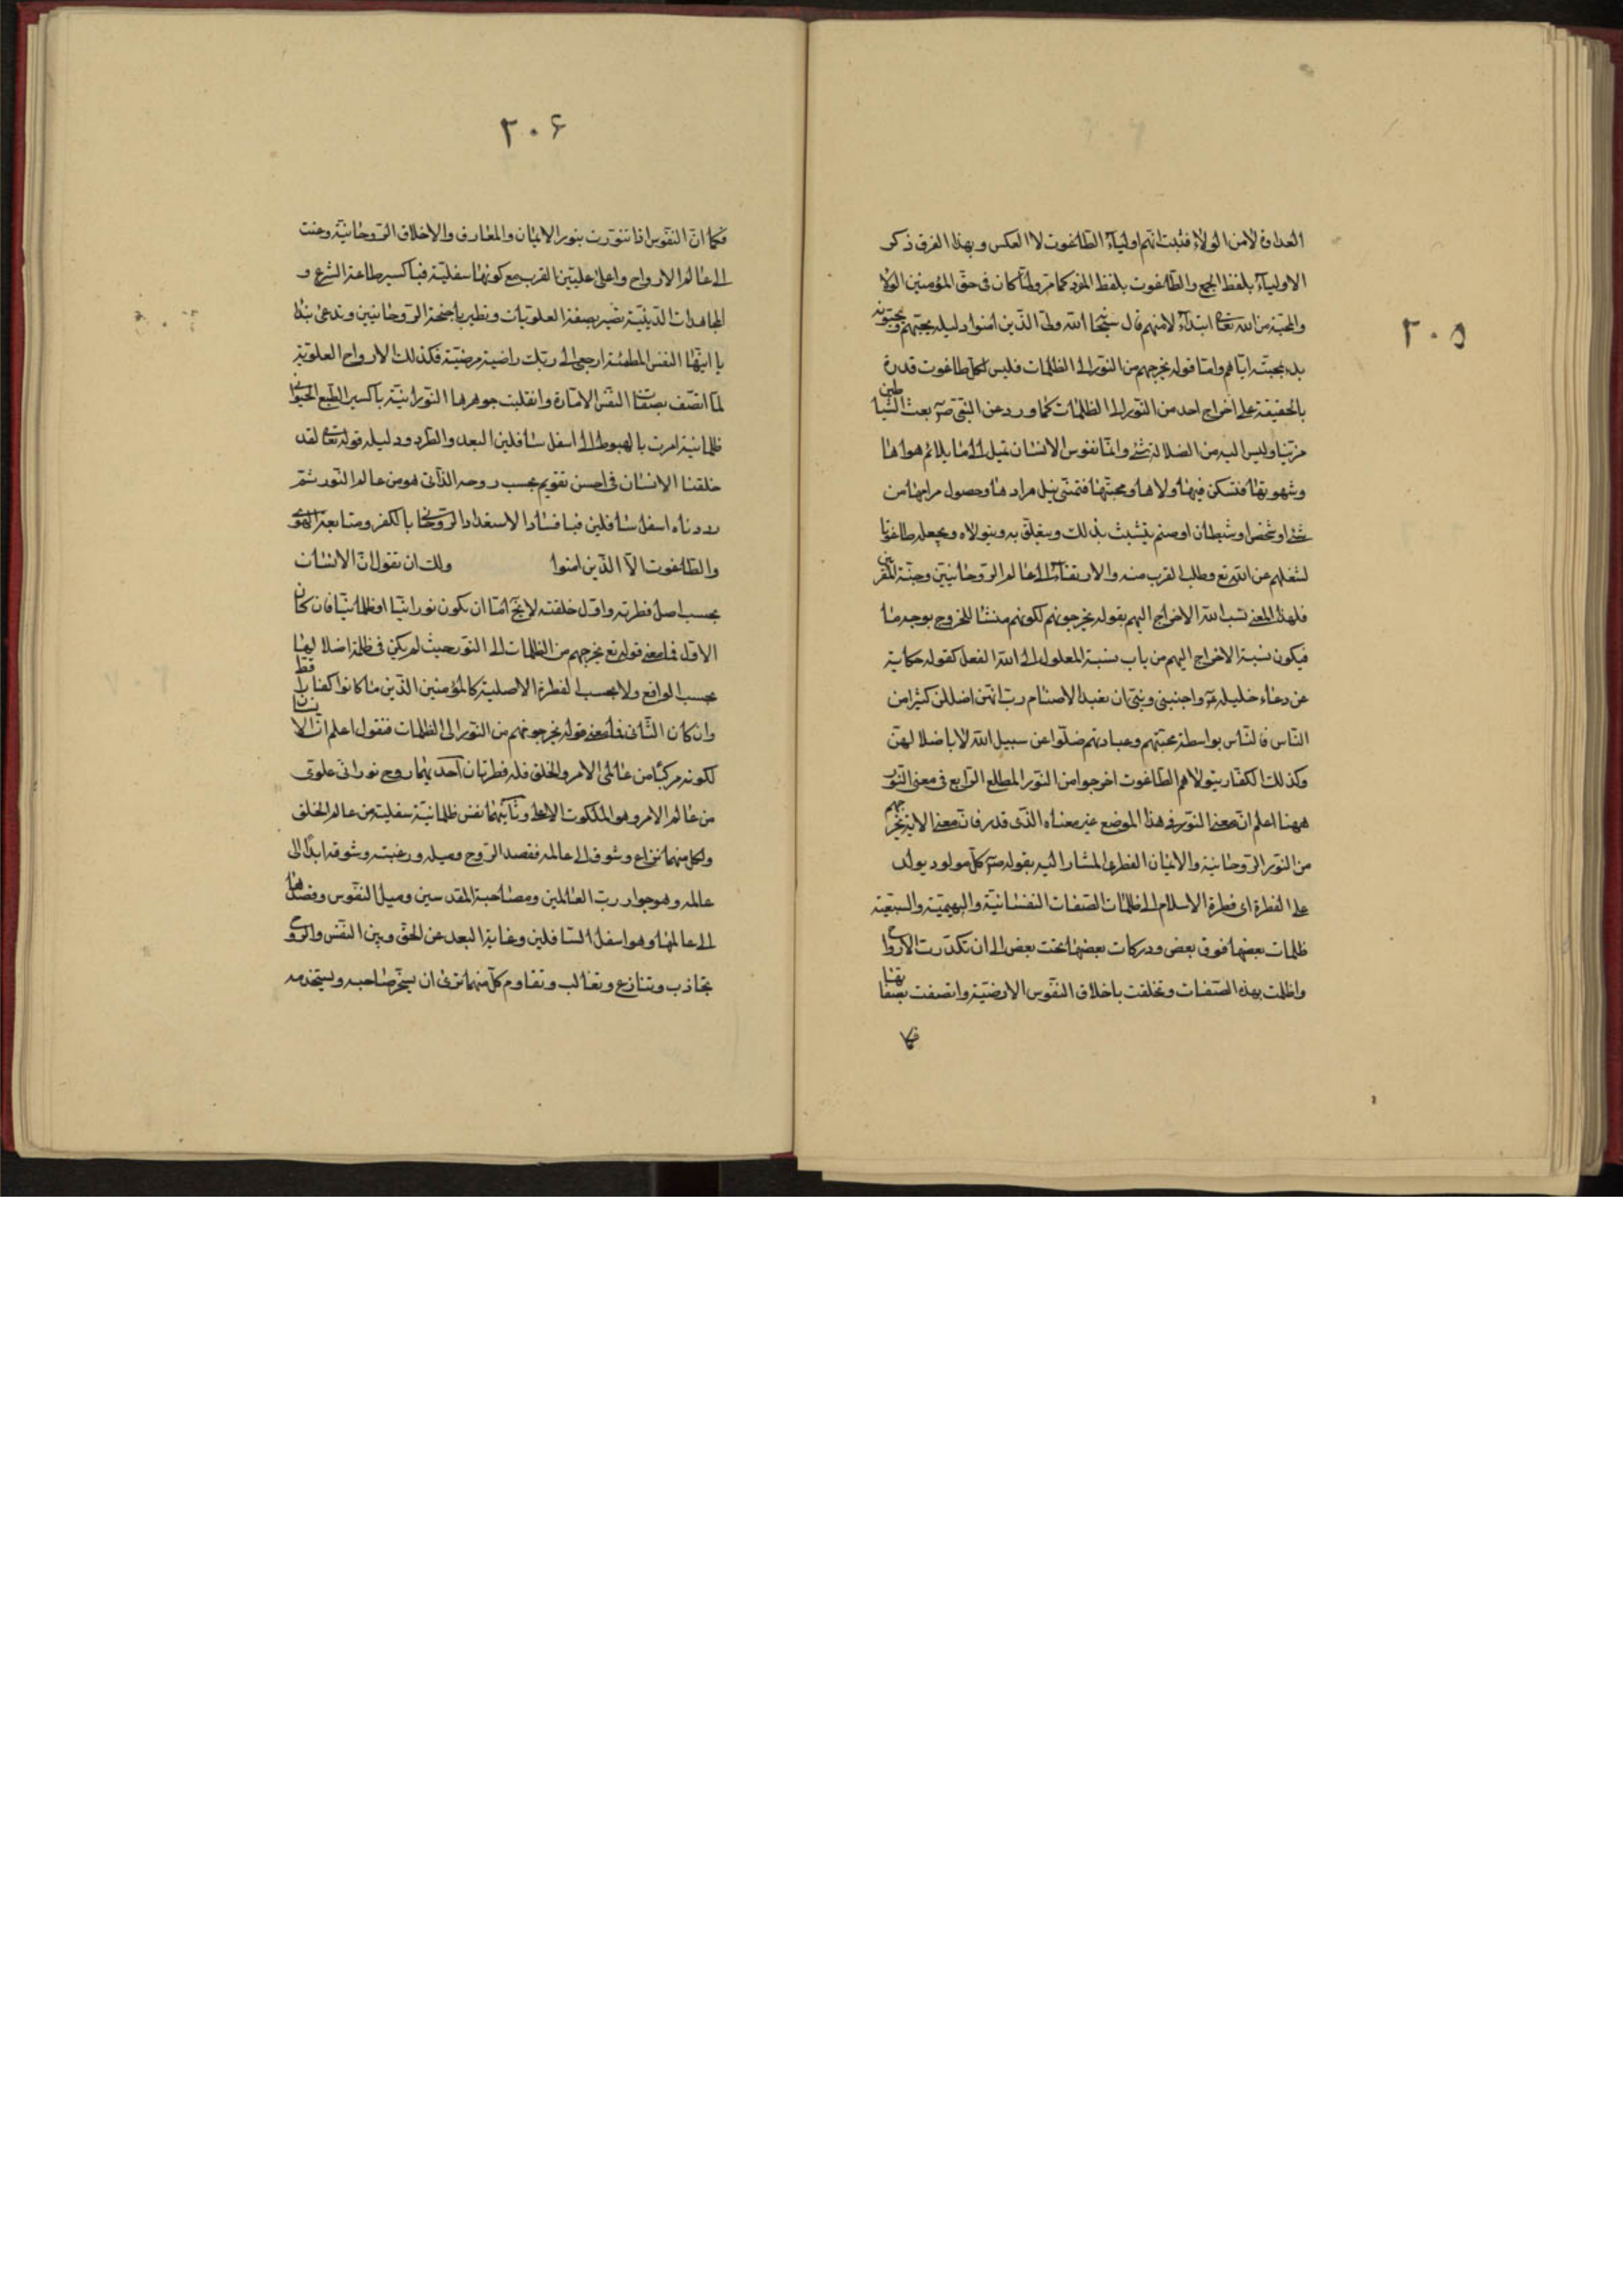 ٢٠٥
العداوة لا من الولاء فثبت انهم اولياء الطاغوت لا العكس وبهذا الفرق ذكر
الاولياء بلفظ الجمع والطاغوت بلفظ المفرد كما مر ولما كان فى حق المؤمنين الولا
والمحبة من الله تعالى ابتداء لا منهم قال سبحا الله ولى الذين امنوا دليله يحبهم ويحبونه
بدء بمحبته اياهم واما قوله يخرجهم من النور الى الظلمات فليس لكل طاغوت قدرة
بالحقيقة على اخراج احد من النور الى الظلمات كما ورد عن النبى ص بعث الشياطين
مزينا وليس اليه من الضلالة شئ وانما نفوس الانسان تميل الى ما يلائم هواها
وشهوتها فتسكن فيها ولاها ومحبتها فتمنى نيل مرادها وحصول مرامها من
شئ او شخص او شيطان او صنم يتشبث بذلك ويتعلق به ويتولاه ويجعله طاغوتا
لشغلهم عن الله تع وطلب القرب منه والارتقاء الى عالم الروحانيين وجنة المقربين
فلهذا المعنى نسب الله الاخراج اليهم بقوله يخرجونهم لكونهم منشئا للخروج بوجه ما
فيكون نسبة الاخراج اليهم من باب نسبة المعلول الى الله الفعل كقوله حكاية
عن دعاء خليله ع واجنبنى وبنى ان نعبد الاصنام رب انهن اضللن كثيرا من
الناس فالناس بواسطة محبتهم وعبادتهم ضلوا عن سبيل الله لا باضلالهن
وكذلك الكفار بتولاهم الطاغوت اخرجوا من النور المطلع الرابع فى معنى النور
ههنا اعلم ان معنى النور فى هذا الموضع غير معناه الذى قد مر فان معنى الاية يخرجهم
من النور الروحانية والايمان الفطرى المشار اليه بقوله ص كل مولود يولد
على الفطرة اى فطرة الاسلام الى ظلمات الصفات النفسانية والبهيمية والسبعية
ظلمات بعضها فوق بعض ودركات بعضها تحت بعض الى ان تكدرت الارواح
واظلمت بهذه الصفات وتخلقت باخلاق النفوس الارضية واتصفت بصفاتها
فكما
٢٠۶
فكما ان النفوس اذا تنورت بنور الايمان والمعارف والاخلاق الروحانية وحنت
الى عالم الارواح واعلى عليين القرب مع كونها سفلية فباكسير طاعة الشرع و
المجاهدات الدينية تصير بصفة العلويات وتطير باجنحة الروحانيين وتدعى بندا
يا ايتها النفس المطمئنة ارجعى الى ربك راضية مرضية فكذلك الارواح العلوية
لما اتصف بصفا النفس الامارة وانقلبت جوهرها النورانية باكسير الطبع الحيوانى
ظلمانية امرت بالهبوط الى اسفل سافلين البعد والطرد ودليله قوله تعالى لقد
خلقنا الانسان فى احسن تقويم بحسب روحه الذاتى هو من عالم النور ثم
رددناه اسفل سافلين فبافساد الاستعداد الروحانى بالكفر ومتابعة الهوى
والطاغوت الا الذين امنوا ولك ان تقول ان الانسان
بحسب اصل فطرته واول خلقته لا يخ اما ان يكون نورانيا او ظلمانيا فان كان
الاول فما معنى قوله تع يخرجهم من الظلمات الى النور حيث لم يكن فى ظلمة اصلا لا
بحسب الواقع ولا بحسب الفطرة الاصلية كالمؤمنين الذين ما كانوا كفارا قط
وان كان الثانى فما معنى قوله يخرجونهم من النور الى الظلمات فنقول اعلم ان الانسان
لكونه مركبا من عالمى الامر والخلق فله فطرتان احديهما روح نورانى علوى
من عالم الامر وهو الملكوت الاعلى وثانيهما نفس ظلمانية سفلية من عالم الخلق
ولكل منهما نزاع وشوق الى عالمه فقصد الروح وميله ورغبته وشوقه ابدا الى
عالمه وهو جوار رب العالمين ومصاحبة المقدسين وميل النفوس وقصدها
الى عالمها وهو اسفل السافلين وغاية البعد عن الحق وبين النفس والروح
تجاذب وتنازع وتغالب وتقاوم كل منهما ترى ان يسخر صاحبه ويستخدمه